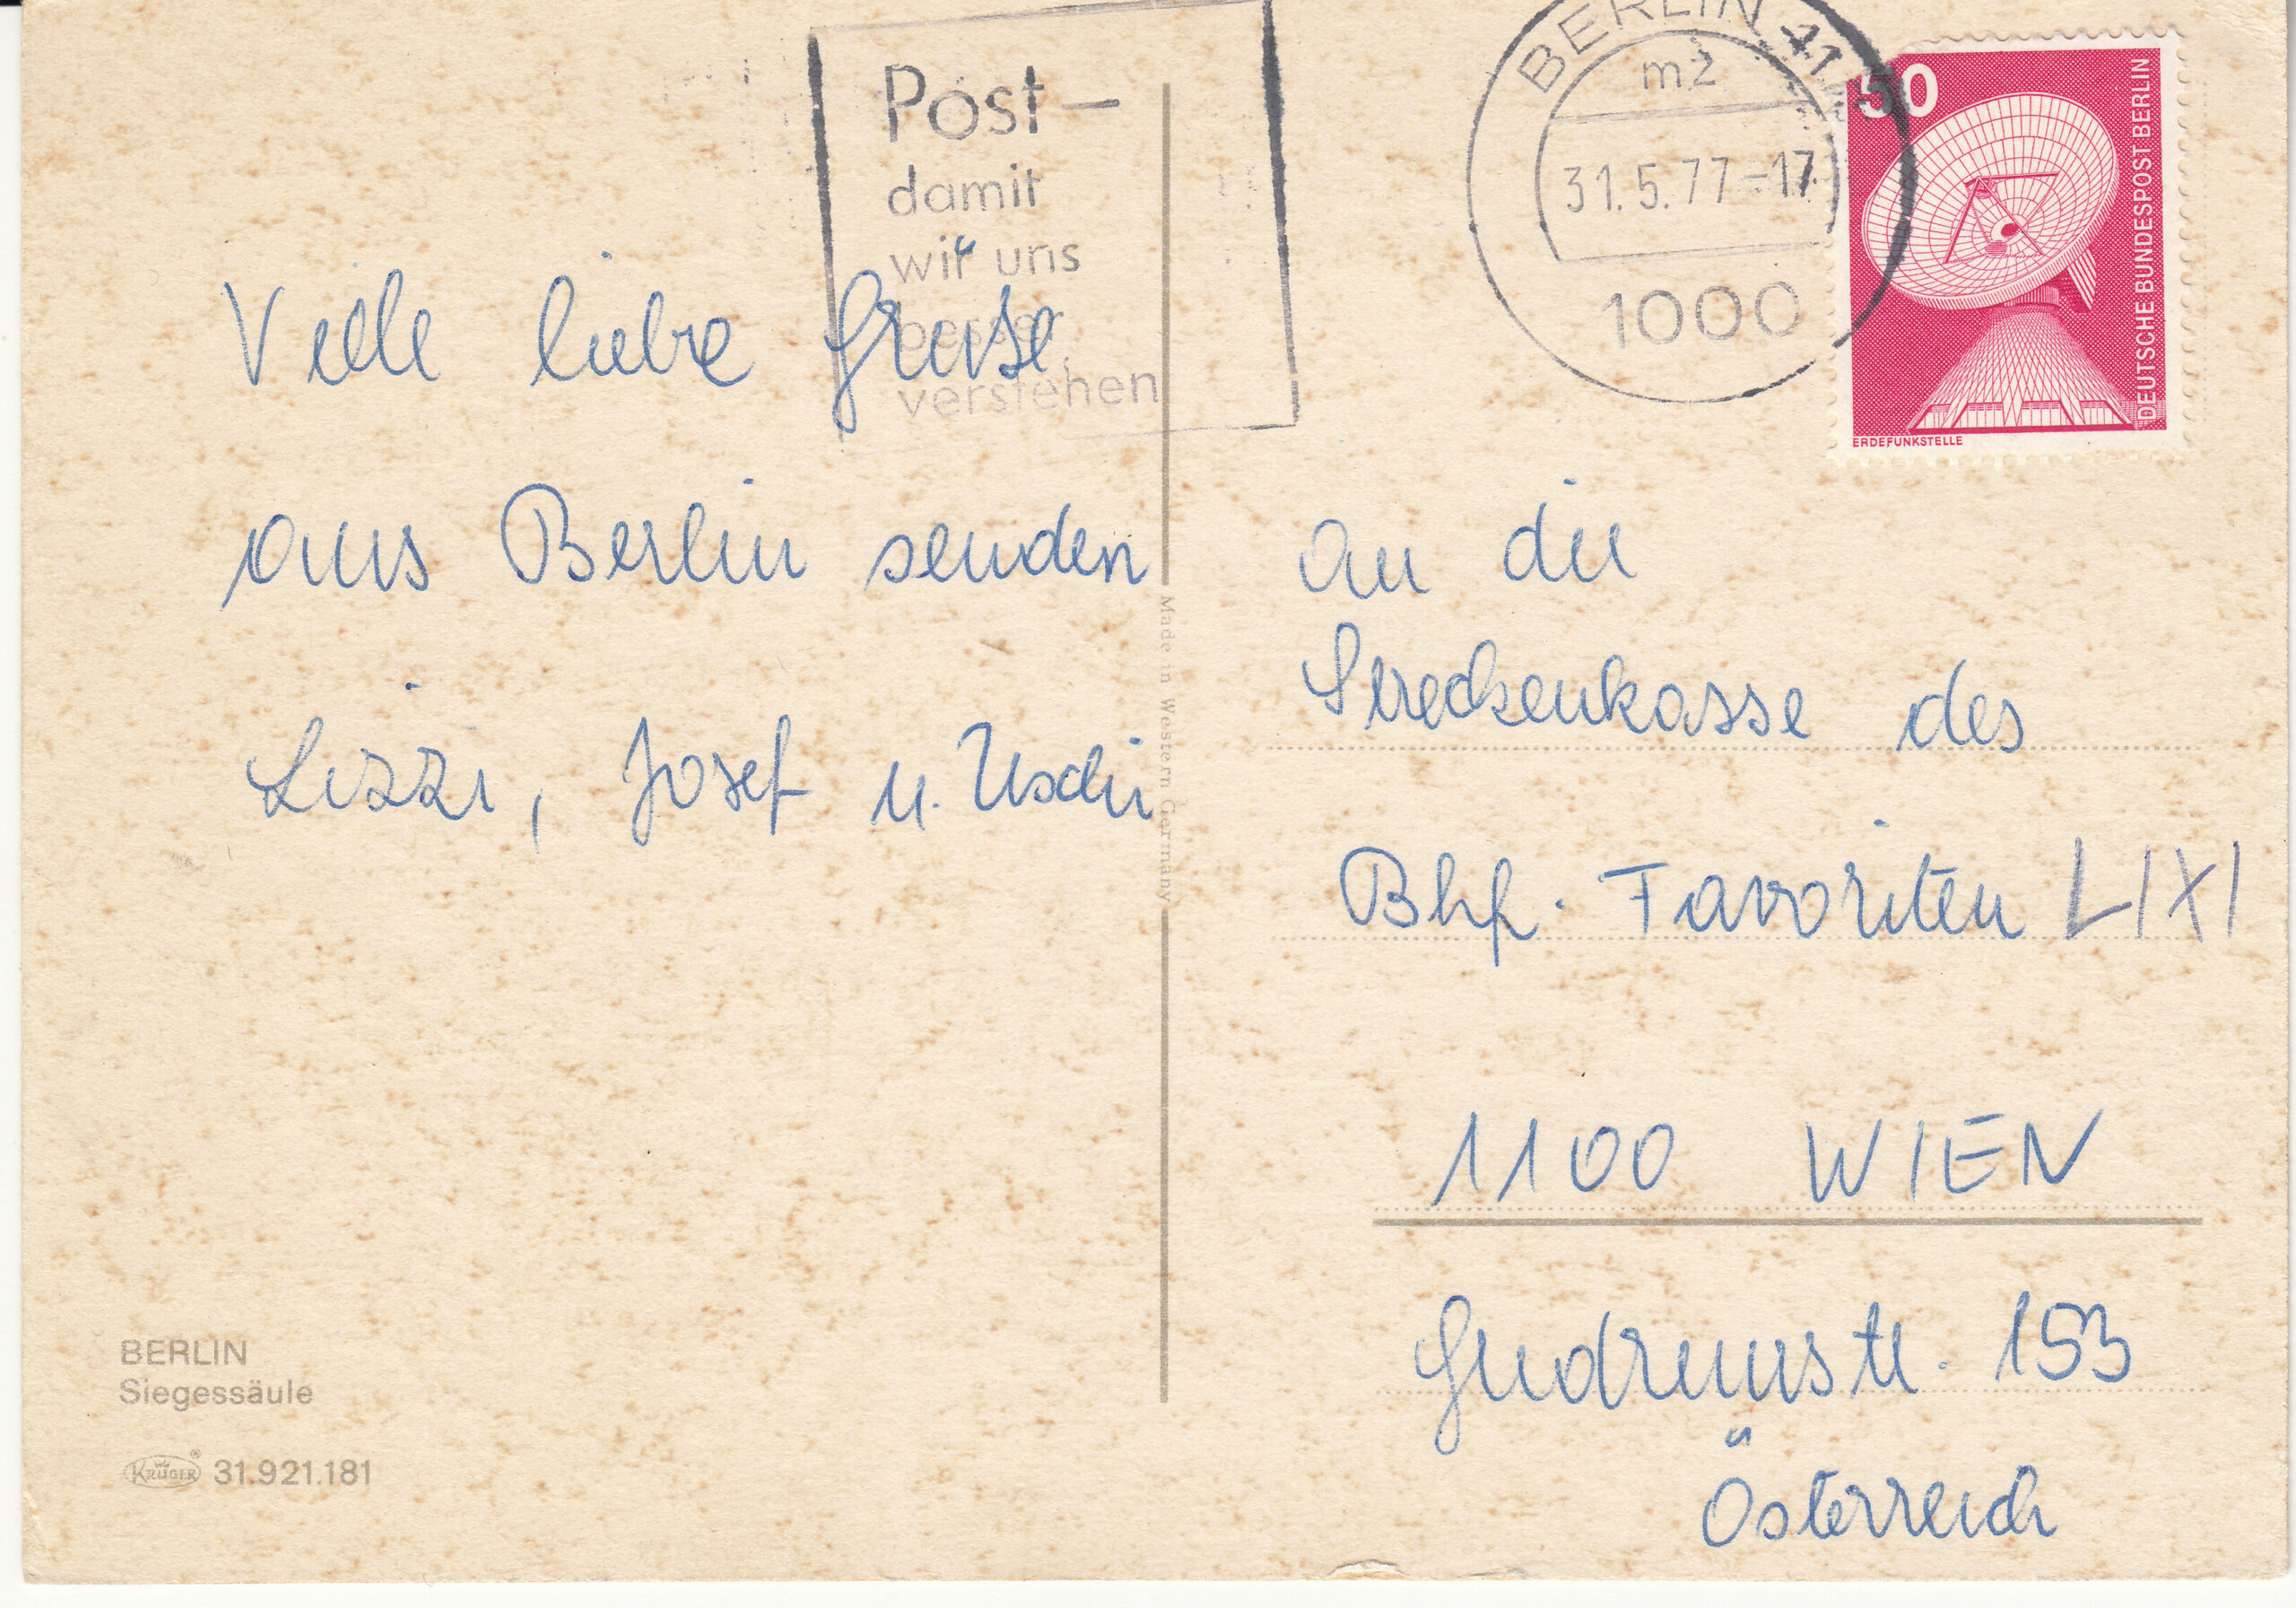 Post-
damit
wir uns
besser
verstehen
BERLIN 41
mz
31.5.77-17
1000
50
DEUTSCHE BUNDESPOST BERLIN
ERDEFUNKSTELLE
Viele liebe Grüße
aus Berlin senden
Lizzi, Josef u. Uschi
Made in Western Germany
An die
Streckenkasse des
Bhf. Favoriten LIXI
1100 WIEN
Gudrunstr. 153
Österreich
BERLIN
Siegessäule
KRÜGER® 31.921.181